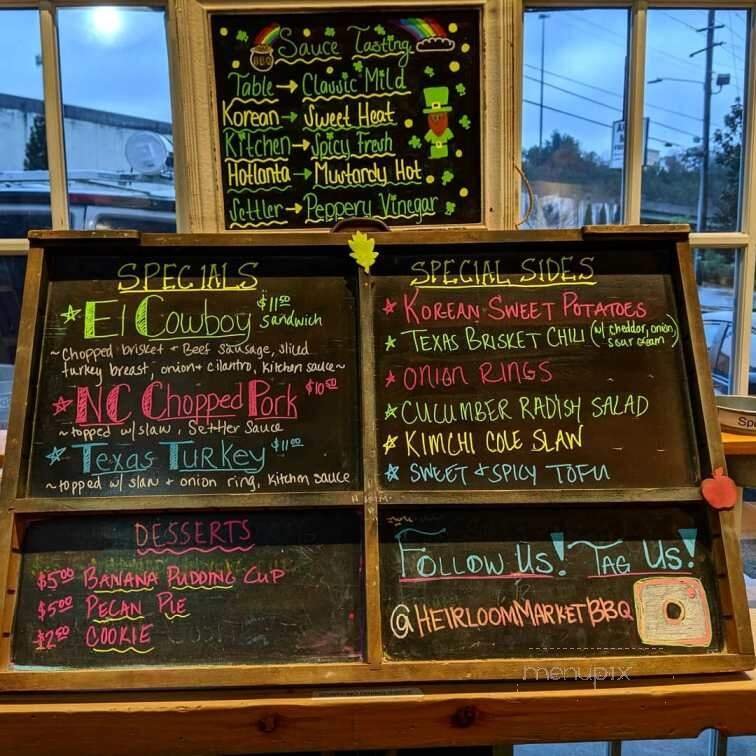 BBQ
Sauce Tasting
Table → Classic Mild
Korean → Sweet Heat
Kitchen → Spicy Fresh
Hotlanta → Mustardy Hot
Settler → Peppery Vinegar
SPECIALS
El Cowboy $11.50 sandwich
~chopped brisket + Beef sausage, sliced
turkey breast, onion + cilantro, kitchen sauce~
NC Chopped Pork $10.50
~topped w/ slaw, Settler Sauce
Texas Turkey $11.00
~topped w/ slaw + onion ring, kitchen sauce
SPECIAL SIDES
KOREAN SWEET POTATOES
TEXAS BRISKET CHILI (w/ cheddar, onion, sour cream)
ONION RINGS
CUCUMBER RADISH SALAD
KIMCHI COLE SLAW
SWEET + SPICY TOFU
DESSERTS
$5.00 BANANA PUDDING CUP
$5.00 PECAN PIE
$2.50 COOKIE
FOLLOW US! TAG US!
@HEIRLOOMMARKETBBQ
menupix